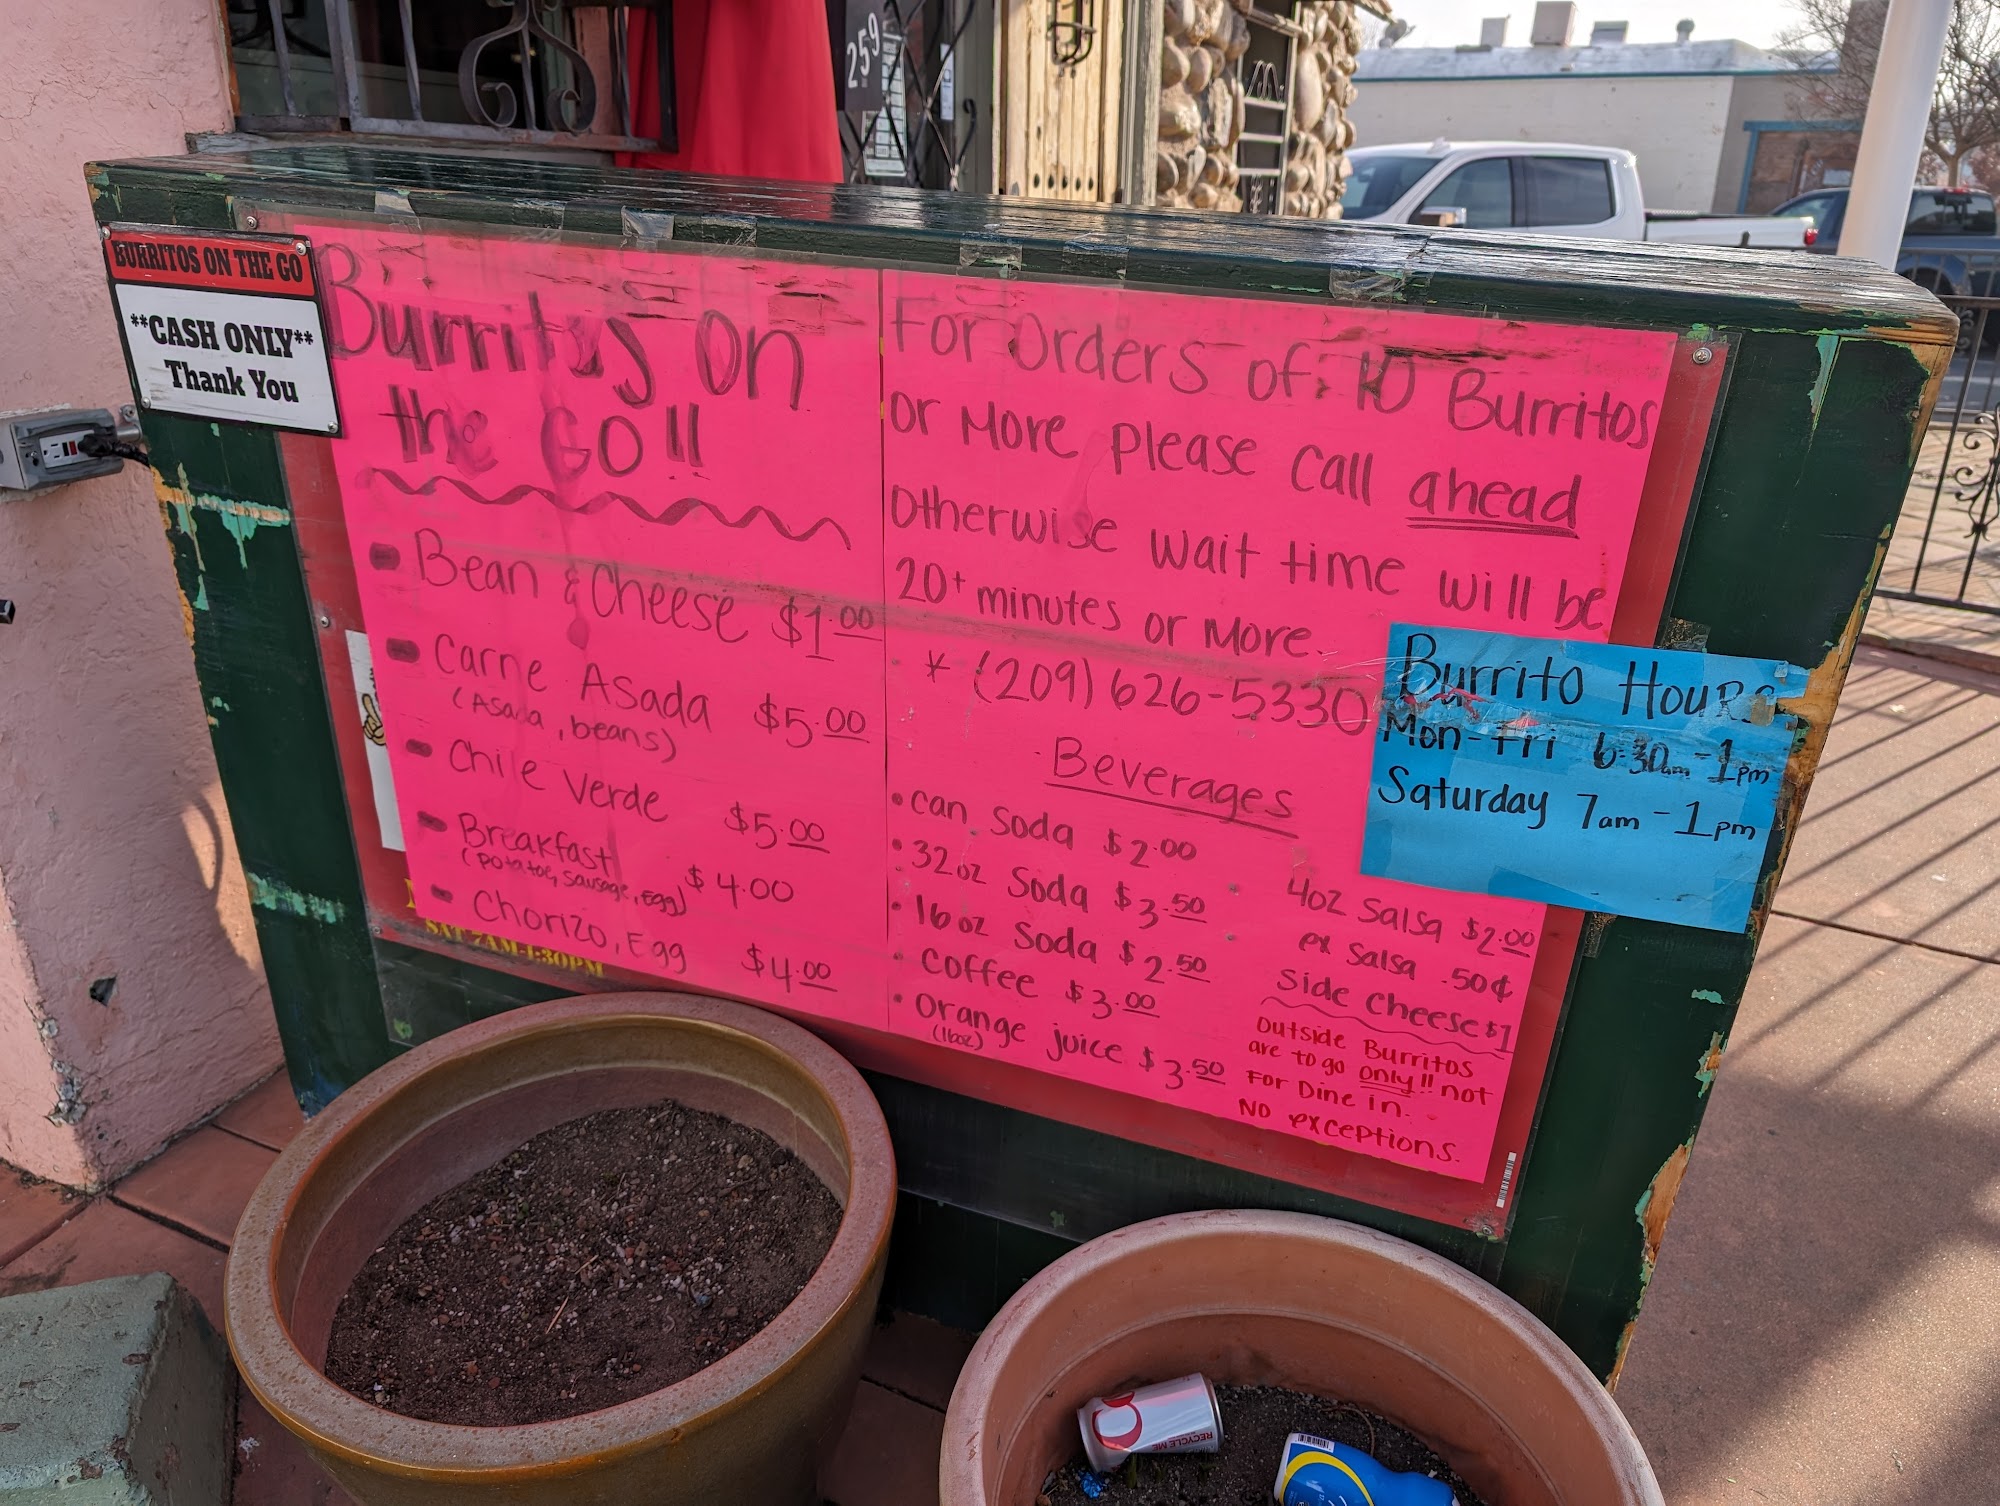 259
BURRITOS ON THE GO
**CASH ONLY**
Thank You
Burritos On
the GO!!
Bean & Cheese $1.00
Carne Asada $5.00
(Asada, beans)
Chile Verde $5.00
Breakfast $4.00
(potatoe, sausage, Egg)
Chorizo, Egg $4.00
SAT 7AM-1:30PM
For Orders of 10 Burritos
or More please call ahead
Otherwise wait time will be
20+ minutes or More.
* (209) 626-5330
Beverages
can Soda $2.00
32oz Soda $3.50
16oz Soda $2.50
Coffee $3.00
Orange juice $3.50
(16oz)
4oz Salsa $2.00
ex Salsa .50¢
Side Cheese $1
Outside Burritos
are to go only!! not
For Dine in.
No exceptions.
Burrito Hours
Mon-Fri 6:30am-1pm
Saturday 7am-1pm
RECYCLE ME